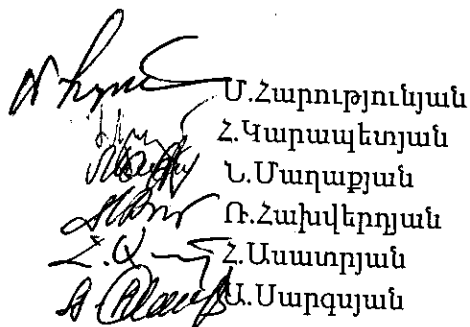 Մ.Հարությունյան
Հ.Կարապետյան
Ն.Մաղաքյան
Ռ.Հախվերդյան
Հ.Ասատրյան
Ա.Սարգսյան